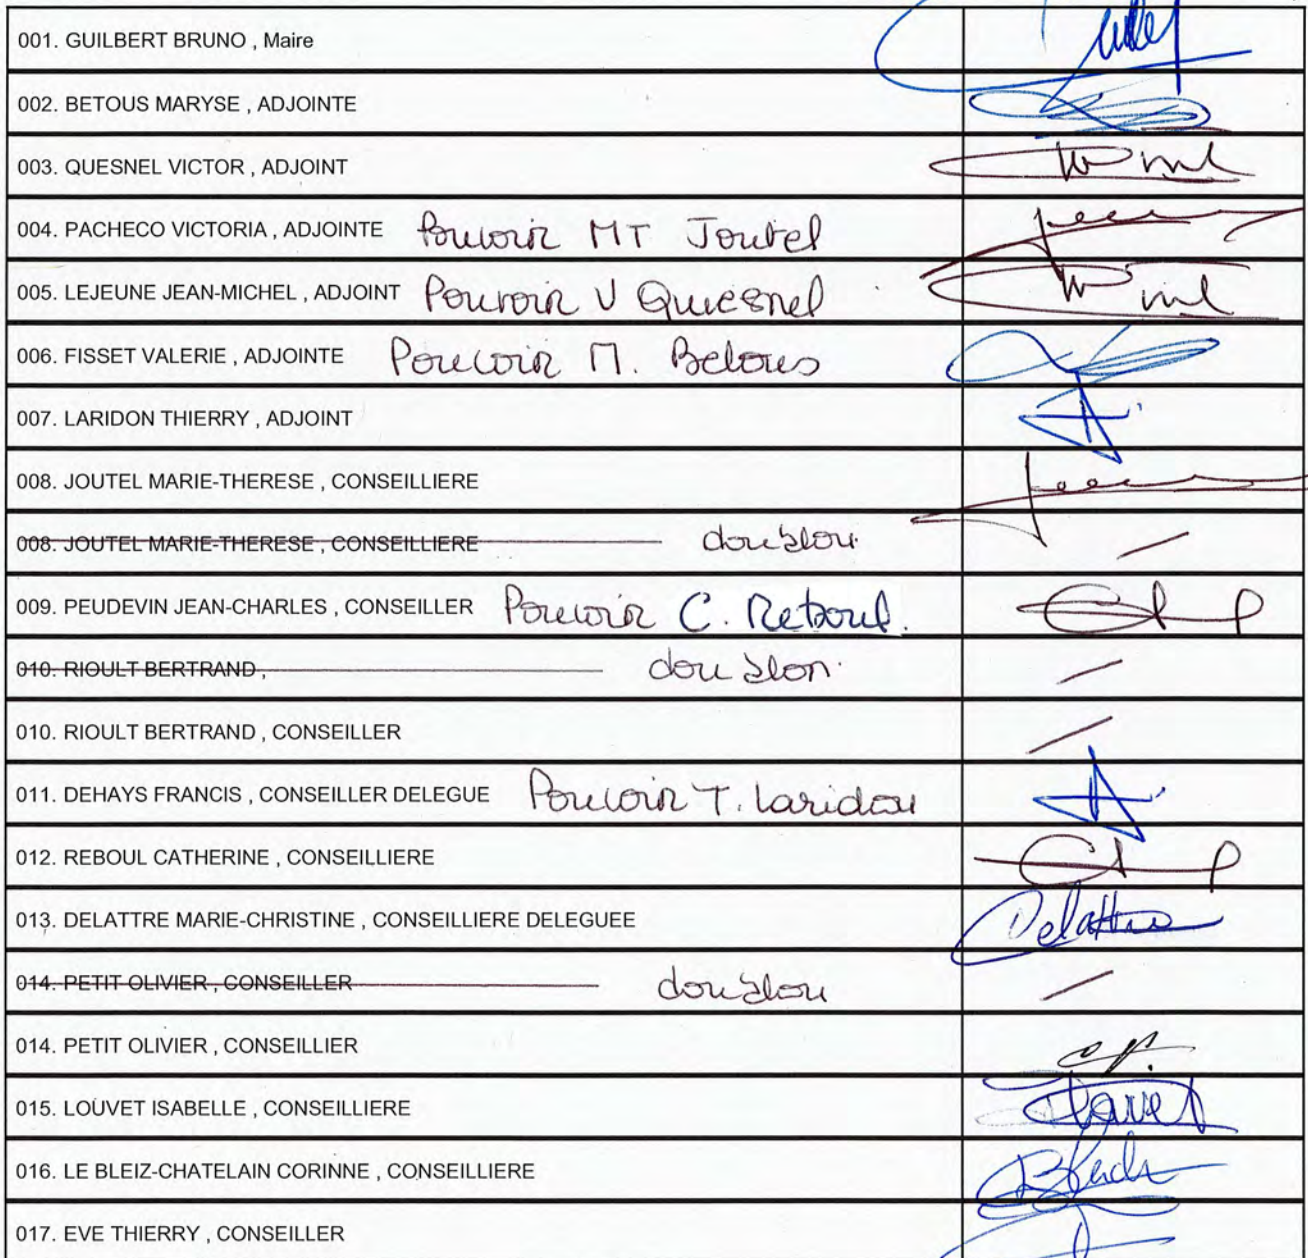 001. GUILBERT BRUNO , Maire
002. BETOUS MARYSE , ADJOINTE
003. QUESNEL VICTOR , ADJOINT
004. PACHECO VICTORIA , ADJOINTE Pouvoir MT Joutel
005. LEJEUNE JEAN-MICHEL , ADJOINT Pouvoir V Quesnel
006. FISSET VALERIE , ADJOINTE Pouvoir M. Betous
007. LARIDON THIERRY , ADJOINT
008. JOUTEL MARIE-THERESE , CONSEILLIERE
008. JOUTEL MARIE-THERESE , CONSEILLIERE doublon
009. PEUDEVIN JEAN-CHARLES , CONSEILLER Pouvoir C. Reboul.
010. RIOULT BERTRAND , doublon
010. RIOULT BERTRAND , CONSEILLER
011. DEHAYS FRANCIS , CONSEILLER DELEGUE Pouvoir T. Laridon
012. REBOUL CATHERINE , CONSEILLIERE
013. DELATTRE MARIE-CHRISTINE , CONSEILLIERE DELEGUEE Delattre
014. PETIT OLIVIER , CONSEILLER doublon
014. PETIT OLIVIER , CONSEILLIER
015. LOUVET ISABELLE , CONSEILLIERE
016. LE BLEIZ-CHATELAIN CORINNE , CONSEILLIERE
017. EVE THIERRY , CONSEILLER